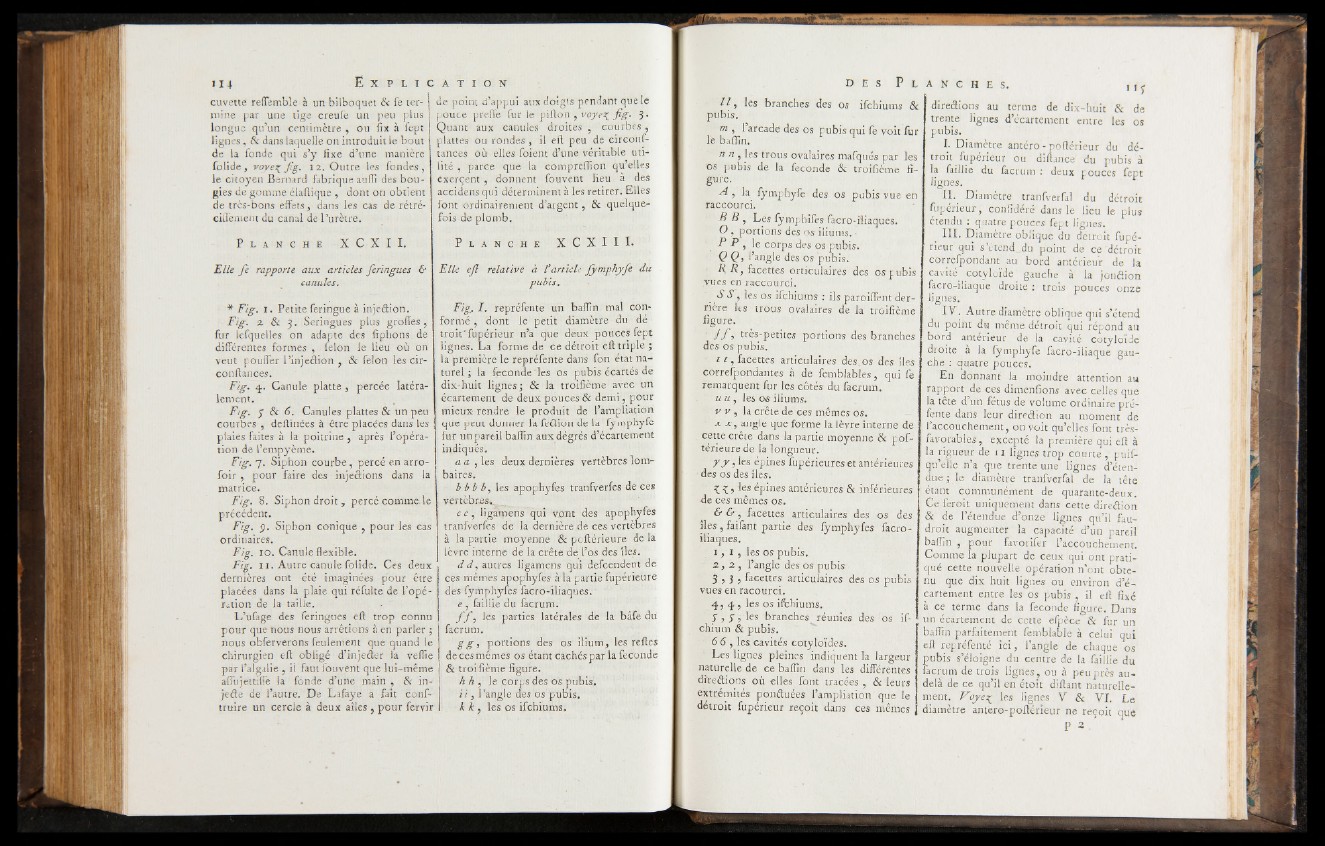 114 EXPLICATION
cuvette reſſemble à un bilboquet & ſe ter-
mine par une tige creuſe un peu plus
longue qu'un centimètre, ou fix à ſept
lignes, & dans laquelle on introduit le bout
de la ſonde qui s'y fixe d'une manière
ſolide, voyez fig. 12. Outre les ſondes,
le citoyen Bernard fabrique auſſi des bou-
gies de gomme élaſtique, dont on obtient
de très-bons effets, dans les cas de rétré-
ciſſement du canal de l'urètre.
PLANCHE XCXII.
Elle ſe rapporte aux articles ſeringues &
canules.
* Fig. 1. Petite ſeringue à injection.
Fig. 2 & 3. Seringues plus groſſes,
ſur leſquelles on adapte des ſiphons de
différentes formes, ſelon le lieu où on
veut pouſſer l'injection, & ſelon les cir-
conſtances.
Fig. 4. Canule platte, percée latéra-
lement.
Fig. 5 & 6. Canules plattes & un peu
courbes, deſtinées à être placées dans les
plaies faites à la poitrine, après l'opéra-
tion de l'empyème.
Fig. 7. Siphon courbe, percé en arro-
ſoir, pour faire des injections dans la
matrice.
Fig. 8. Siphon droit, percé comme le
précédent.
Fig. 9. Siphon conique, pour les cas
ordinaires.
Fig. 10. Canule flexible.
Fig. 11. Autre canule ſolide. Ces deux
dernières ont été imaginées pour être
placées dans la plaie qui réſulte de l'opé-
ration de la taille.
L'uſage des ſeringues eſt trop connu
pour que nous nous arrêtions à en parler ;
nous obſerverons ſeulement que quand le
chirurgien eſt obligé d'injecter la veſſie
par l'algalie, il faut ſouvent que lui-même
aſſujettiſſe la ſonde d'une main, & in-
jecte de l'autre. De Lafaye a fait conſ-
truire un cercle à deux aîles, pour ſervir
de point d'appui aux doigts pendant que le
pouce preſſe ſur le piſton, voyez fig. 3.
Quant aux canules droites, courbes,
plattes ou rondes, il eſt peu de circonſ-
tances où elles ſoient d'une véritable uti-
lité, parce que la compreſſion qu'elles
exerçent, donnent ſouvent lieu à des
accidens qui déterminent à les retirer. Elles
ſont ordinairement d'argent, & quelque-
fois de plomb.
PLANCHE XCXIII.
Elle eſt relative à l'article ſymphyſe du
pubis.
Fig. I. repréſente un baſſin mal con-
formé, dont le petit diamètre du dé-
troit ſupérieur n'a que deux pouces ſept
lignes. La forme de ce détroit eſt triple ;
la première le repréſente dans ſon état na-
turel ; la ſeconde les os pubis écartés de
dix-huit lignes ; & la troiſième avec un
écartement de deux pouces & demi, pour
mieux rendre le produit de l'ampliation
que peut donner la ſection de la ſymphyſe
ſur un pareil baſſin aux dégrés d'écartement
indiqués.
a a, les deux dernières vertèbres lom-
baires.
b b b b, les apophyſes tranſverſes de ces
vertèbres.
c c, ligamens qui vont des apophyſes
tranſverſes de la dernière de ces vertèbres
à la partie moyenne & poſtérieure de la
lèvre interne de la crête de l'os des îles.
d d, autres ligamens qui deſcendent de
ces mêmes apophyſes à la partie ſupérieure
des ſymphyſes ſacro-iliaques.
e, ſaillie du ſacrum.
f f, les parties latérales de la bâſe du
ſacrum.
g g, portions des os ilium, les reſtes
de ces mêmes os étant cachés par la ſeconde
& troiſième figure.
h h, le corps des os pubis.
i i, l'angle des os pubis.
k k, les os iſchiums.
DES PLANCHES. 115
l l, les branches des os iſchiums &
pubis.
m, l'arcade des os pubis qui ſe voit ſur
le baſſin.
n n, les trous ovalaires maſqués par les
os pubis de la ſeconde & troiſième fi-
gure.
A, la ſymphyſe des os pubis vue en
raccourci.
B B, Les ſymphiſes ſacro-iliaques.
O, portions des os iliums.
P P, le corps des os pubis.
Q Q, l'angle des os pubis.
R R, facettes orticulaires des os pubis
vues en raccourci.
S S, les os iſchiums : ils paroiſſent der-
rière les trous ovalaires de la troiſième
figure.
ſ ſ, très-petites portions des branches
des os pubis.
t t, facettes articulaires des os des îles
correſpondantes à de ſemblables, qui ſe
remarquent ſur les côtés du ſacrum.
u u, les os iliums.
v v, la crête de ces mêmes os.
x x, angle que forme la lèvre interne de
cette crête dans la partie moyenne & poſ-
térieure de la longueur.
y y, les épines ſupérieures et antérieures
des os des îles.
z z, les épines antérieures & inférieures
de ces mêmes os.
& &, facettes articulaires des os des
îles, faiſant partie des ſymphyſes ſacro-
iliaques.
1, 1, les os pubis.
2, 2, l'angle des os pubis
3, 3, facettes articulaires des os pubis
vues en racourci.
4, 4, les os iſchiums.
5, 5, les branches réunies des os iſ-
chium & pubis.
6 6, les cavités cotyloïdes.
Les lignes pleines indiquent la largeur
naturelle de ce baſſin dans les différentes
directions où elles ſont tracées, & leurs
extrémités ponctuées l'ampliation que le
détroit ſupérieur reçoit dans ces mêmes
directions au terme de dix-huit & de
trente lignes d'écartement entre les os
pubis.
I. Diamètre antéro-poſtérieur du dé-
troit ſupérieur ou diſtance du pubis à
la ſaillie du ſacrum : deux pouces ſept
lignes.
II. Diamètre tranſverſal du détroit
ſupérieur, conſidéré dans le lieu le plus
étendu : quatre pouces ſept lignes.
III. Diamètre oblique du détroit ſupé-
rieur qui s'étend du point de ce détroit
correſpondant au bord antérieur de la
cavité cotyloïde gauche à la jonction
ſacro-iliaque droite : trois pouces onze
lignes.
IV. Autre diamètre oblique qui s'étend
du point du même détroit qui répond au
bord antérieur de la cavité cotyloïde
droite à la ſymphyſe ſacro-iliaque gau-
che : quatre pouces.
En donnant la moindre attention au
rapport de ces dimenſions avec celles que
la tête d'un fétus de volume ordinaire pré-
ſente dans leur direction au moment de
l'accouchement, on voit qu'elles ſont très-
favorables, excepté la première qui eſt à
la rigueur de 11 lignes trop courte, puiſ-
qu'elle n'a que trente une lignes d'éten-
due ; le diamètre tranſverſal de la tête
étant communément de quarante-deux.
Ce ſeroit uniquement dans cette direction
& de l'étendue d'onze lignes qu'il fau-
droit augmenter la capacité d'un pareil
baſſin, pour favoriſer l'accouchement.
Comme la plupart de ceux qui ont prati-
qué cette nouvelle opération n'ont obte-
nu que dix huit lignes ou environ d'é-
cartement entre les os pubis, il eſt fixé
à ce terme dans la ſeconde figure. Dans
un écartement de cette eſpèce & ſur un
baſſin parfaitement ſemblable à celui qui
eſt repréſenté ici, l'angle de chaque os
pubis s'éloigne du centre de la ſaillie du
ſacrum de trois lignes, ou à peu près au-
delà de ce qu'il en étoit diſtant naturelle-
ment. Voyez les lignes V & VI. Le
diamètre antero-poſtérieur ne reçoit que
P 2